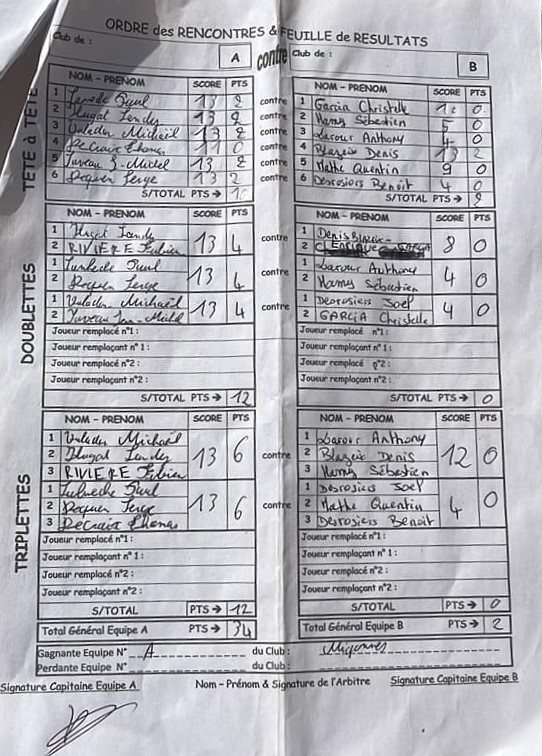 ORDRE des RENCONTRES & FEUILLE de RESULTATS
Club de : A contre Club de : B
TÊTE À TÊTE
NOM - PRENOM SCORE PTS NOM - PRENOM SCORE PTS
1 13 2 contre 1 Garcia Christelle 0
2 Hugal 13 2 contre 2 Hamy Sébastien 5 0
3 Valader Michaël 13 2 contre 3 Larour Anthony 4 0
4 11 0 contre 4 Blazeix Denis 13 2
5 13 2 contre 5 Mathe Quentin 9 0
6 Pequer Serge 13 2 contre 6 Desrosiers Benoit 4 0
S/TOTAL PTS → S/TOTAL PTS →
DOUBLETTES
NOM - PRENOM SCORE PTS NOM - PRENOM SCORE PTS
1 Hugal 13 4 contre 1 Denis Blazeix 8 0
2 RIVIERE Fabien 2
1 13 4 contre 1 Larour Anthony 4 0
2 Pequer Serge 2 Hamy Sébastien
1 Valader Michaël 13 4 contre 1 Desrosiers Joel 4 0
2 2 GARCIA Christelle
Joueur remplacé n°1 : Joueur remplacé n°1 :
Joueur remplaçant n°1 : Joueur remplaçant n°1 :
Joueur remplacé n°2 : Joueur remplacé n°2 :
Joueur remplaçant n°2 : Joueur remplaçant n°2 :
S/TOTAL PTS → 12 S/TOTAL PTS → 0
TRIPLETTES
NOM - PRENOM SCORE PTS NOM - PRENOM SCORE PTS
1 Valader Michaël 1 Larour Anthony
2 Hugal 13 6 contre 2 Blazeix Denis 12 0
3 RIVIERE Fabien 3 Hamy Sébastien
1 1 Desrosiers Joel
2 Pequer Serge 13 6 contre 2 Mathe Quentin 4 0
3 3 Desrosiers Benoit
Joueur remplacé n°1 : Joueur remplacé n°1 :
Joueur remplaçant n°1 : Joueur remplaçant n°1 :
Joueur remplacé n°2 : Joueur remplacé n°2 :
Joueur remplaçant n°2 : Joueur remplaçant n°2 :
S/TOTAL PTS → 12 S/TOTAL PTS → 0
Total Général Equipe A PTS → 34 Total Général Equipe B PTS → 2
Gagnante Equipe N° A du Club : Migennes
Perdante Equipe N° du Club :
Signature Capitaine Equipe A Nom - Prénom & Signature de l'Arbitre Signature Capitaine Equipe B